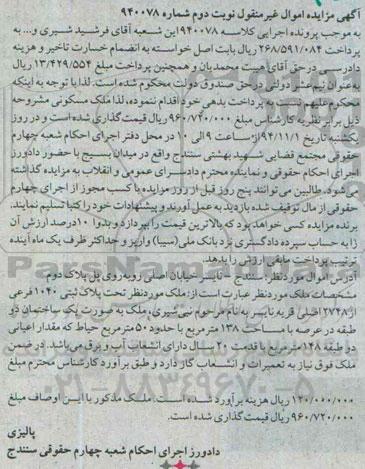 آگهی مزایده اموال غیرمنقول نوبت دوم شماره ۹۴۰۰۷۸
به موجب پرونده اجرایی کلاسه ۹۴۰۰۷۸ این شعبه آقای فرشید شبیری و... به
پرداخت ۲۶۸/۵۹۱/۰۸۴ ریال بابت اصل خواسته به انضمام خسارت تاخیر و هزینه
دادرسی در حق آقای هیبت محمدیان و همچنین پرداخت مبلغ ۱۳/۴۲۹/۵۵۴ ریال
به‌عنوان نیم عشر دولتی در حق صندوق دولت محکوم شده است. لذا با توجه به اینکه
محکوم علیهم نسبت به پرداخت بدهی خود اقدام ننموده، لذا ملک مسکونی مشروحه
ذیل برابر نظریه کارشناس مبلغ ۹۶۰/۷۲۰/۰۰۰ ریال قیمت گذاری شده است و در روز
یکشنبه تاریخ ۹۴/۱۱/۱ از ساعت ۹ الی ۱۰ در محل دفتر اجرای احکام شعبه چهارم
حقوقی مجتمع قضایی شهید بهشتی سنندج واقع در میدان بسیج با حضور دادورز
اجرای احکام حقوقی و نماینده محترم دادسرای عمومی و انقلاب به مزایده گذاشته
می‌شود. طالبین می توانند پنج روز قبل از روز مزایده با کسب مجوز از اجرای چهارم
حقوقی از مال توقیف شده بازدید به عمل آورند و پیشنهادات خود را کتبا تسلیم نمایند.
برنده مزایده کسی خواهد بود که بالاترین قیمت را بپردازد و بدوا ۱۰ درصد ارزش آن
را به حساب سپرده دادگستری نزد بانک ملی (سیبا) واریز و حداکثر ظرف یک ماه آینده
ترتیب پرداخت مابقی ارزش را بدهد.
آدرس اموال مورد نظر: سنندج - نایسر خیابان اصلی روبه‌روی پل پلاک دوم
مشخصات ملک مورد نظر عبارت است از: ملک مورد نظر تحت پلاک ثبتی ۱۰۴۰ فرعی
از ۲۷۴۸ اصلی قریه نایسر به نام مرحوم نبی شبری، ملک به صورت یک ساختمان دو
طبقه در عرصه با مساحت ۱۳۸ مترمربع با حدود ۵۰ مترمربع حیاط که مقدار اعیانی
دو طبقه ۱۴۸ مترمربع با قدمت ۲۰ سال دارای انشعاب آب و برق می‌باشد. در ضمن
ملک فوق نیاز به تعمیرات و انشعاب گاز دارد و طبق برآورد کارشناس محترم مبلغ
۱۲۰/۰۰۰/۰۰۰ ریال هزینه برآورد شده است. ملک مذکور با این اوصاف مبلغ
۹۶۰/۷۲۰/۰۰۰ ریال قیمت گذاری شده است.
پالیزی
دادورز اجرای احکام شعبه چهارم حقوقی سنندج
ParsNamadData
۰۲۱-۸۸۳۴۹۶۷۰-۵